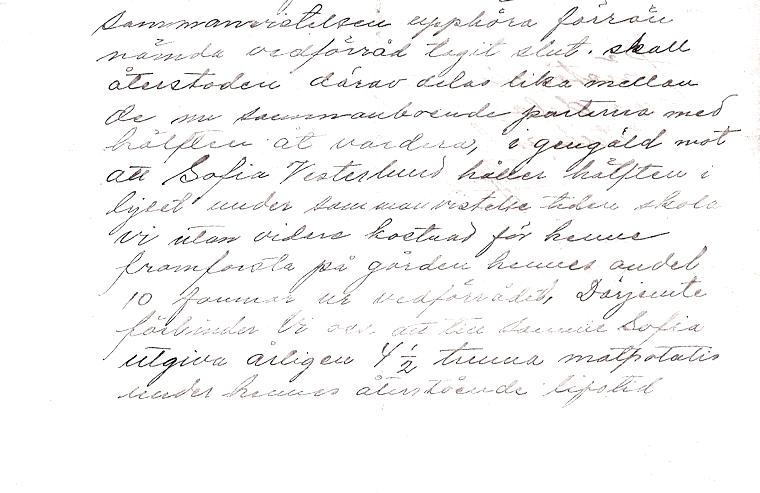 sammanvistelsen upphöra förrän
nämda vedförråd tagit slut. skall
återstoden därav delas lika mellan
de nu sammanboende parterna med
hälften åt vardera, i gengäld mot
att Sofia Vesterlund håller hälften i
lyset under sammanvistelse tiden skola
vi utan vidare kostnad för henne
framforsla på gården hennes andel
10 famnar ur vedförrådet, Därjemte
förbinder Vi oss. att till samme Sofia
utgiva årligen 4 1/2 tunna matpotatis
under hennes återstående lifstid